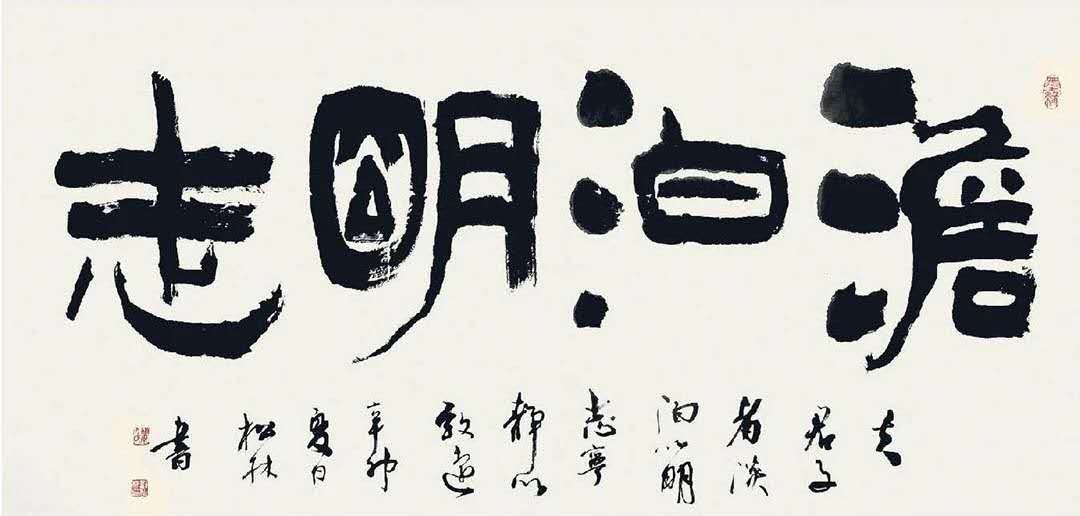 澹泊明志
夫
君子
者淡
泊以明
志寧
靜以
致遠
辛卯
夏日
松林
書